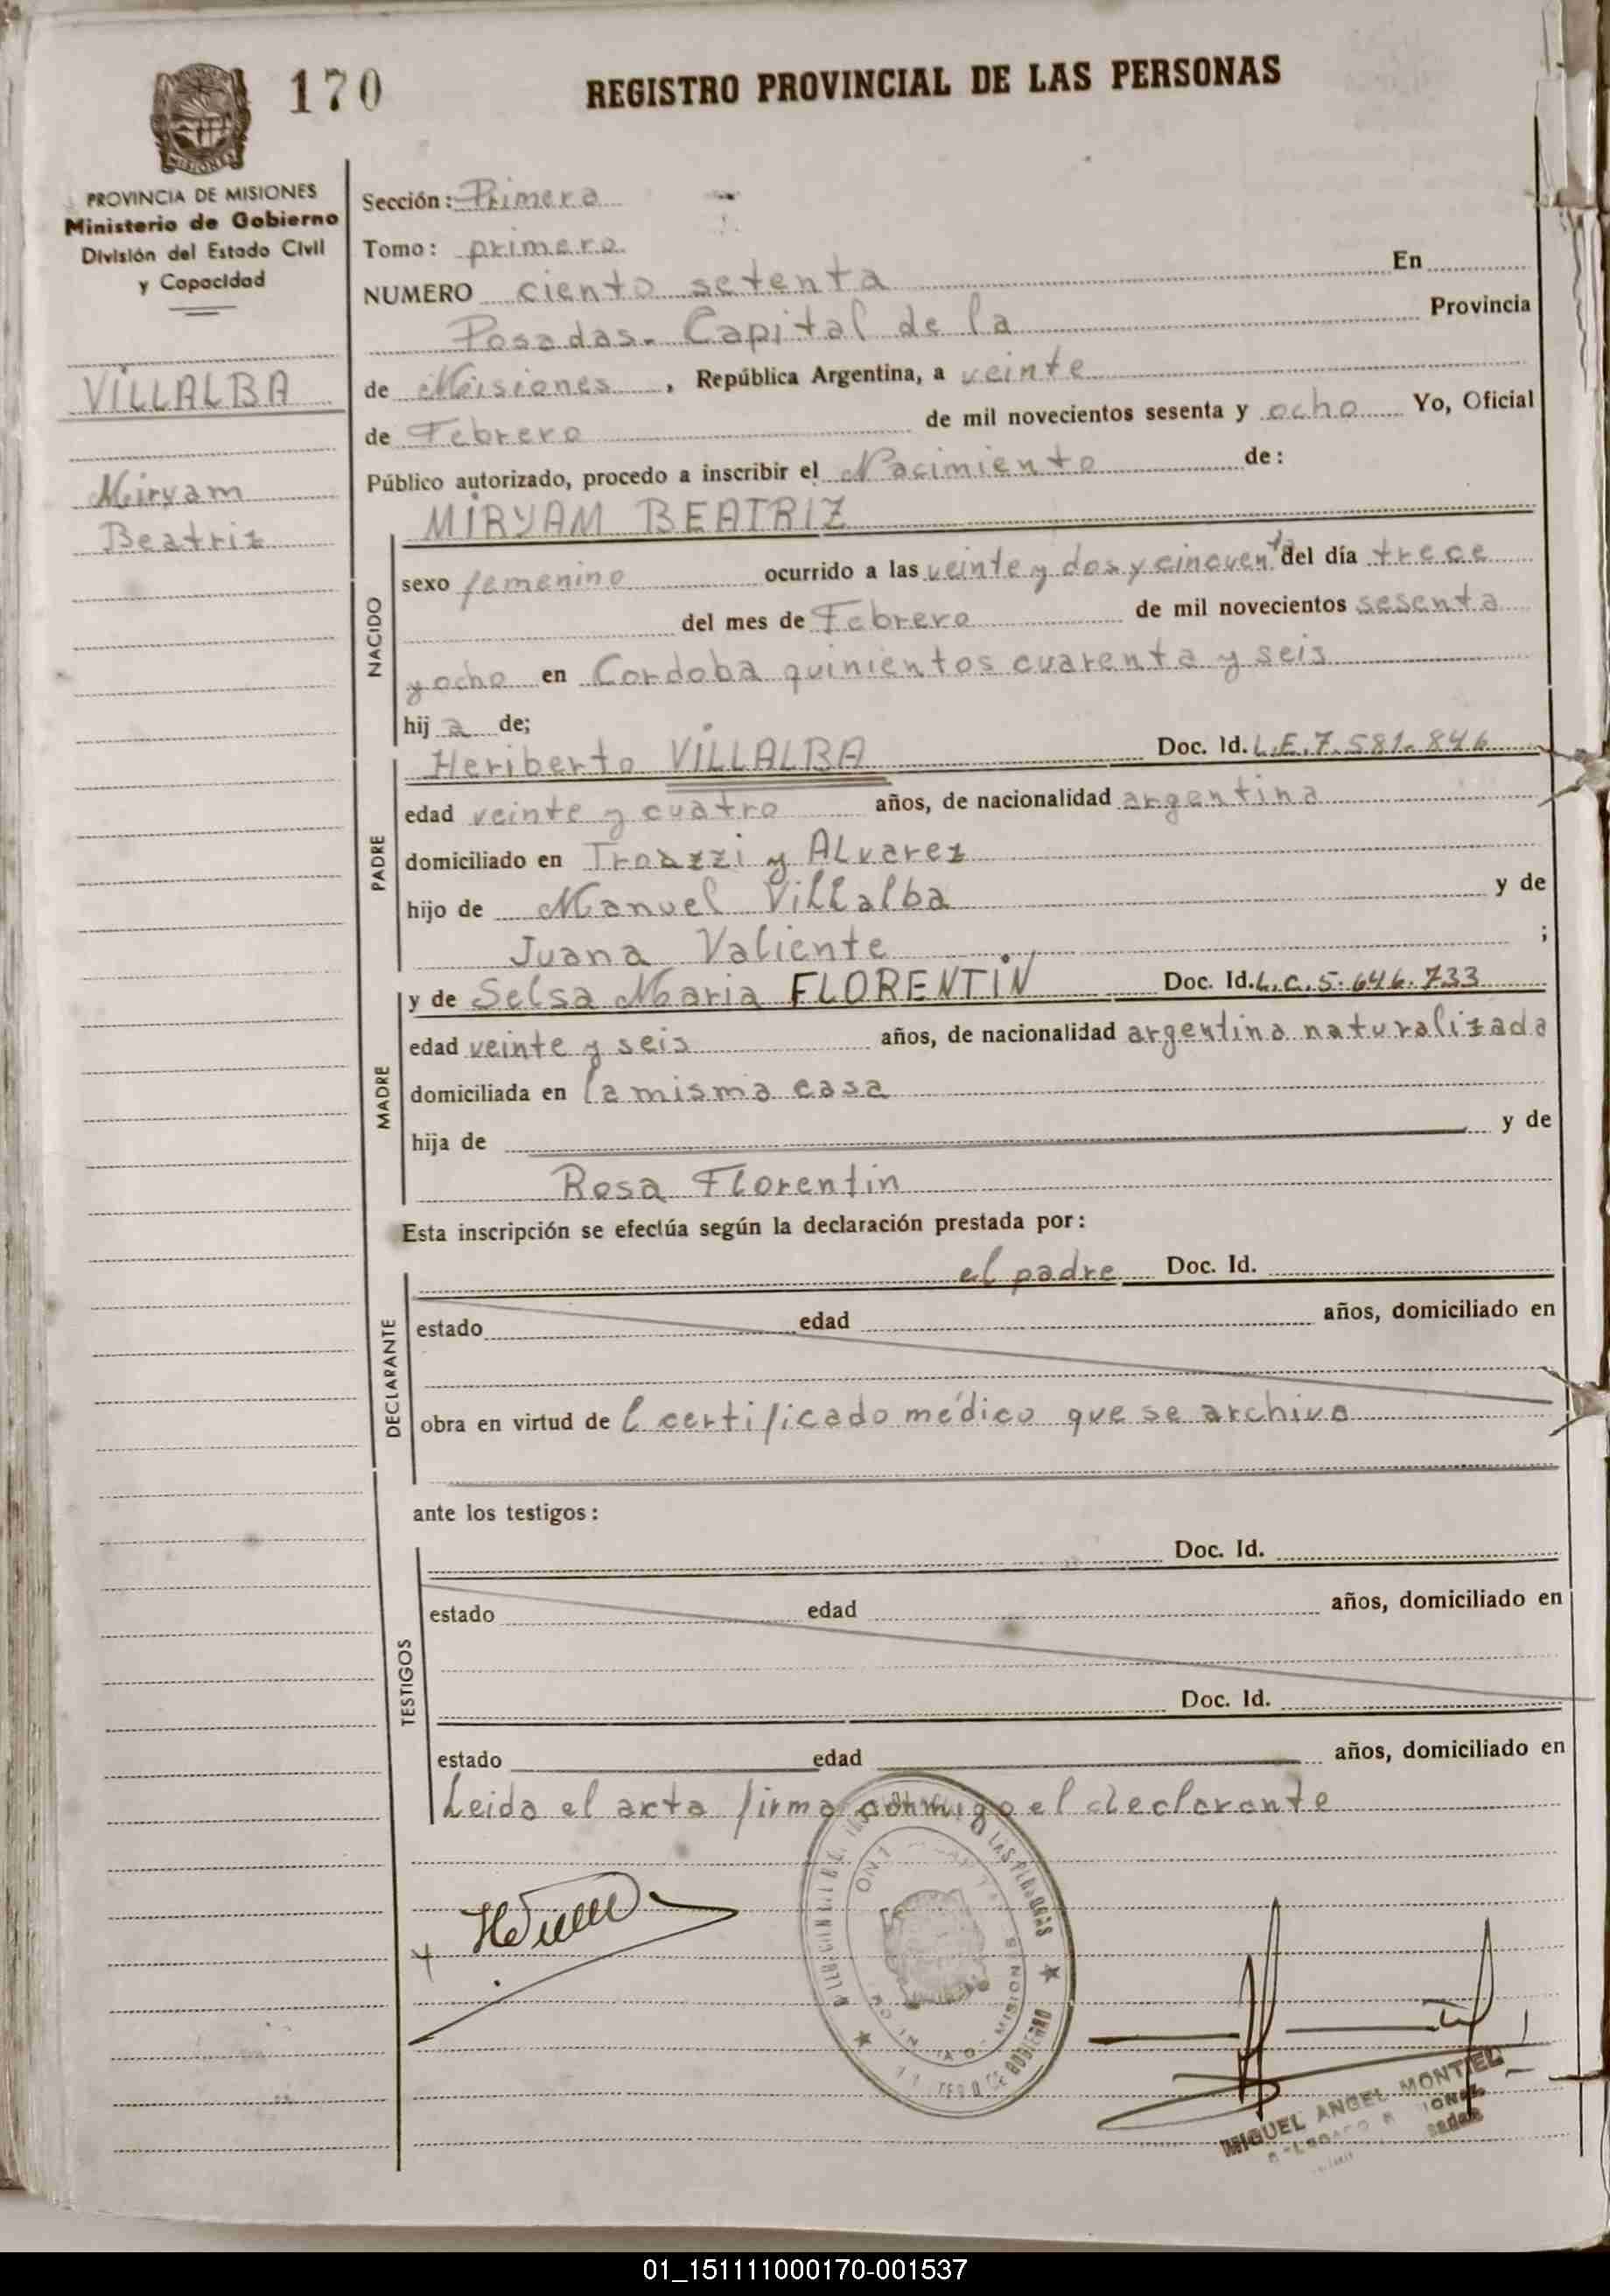 170
REGISTRO PROVINCIAL DE LAS PERSONAS
MISIONES
PROVINCIA DE MISIONES
Ministerio de Gobierno
División del Estado Civil
y Capacidad
VILLALBA
Miryam
Beatriz
Sección: Primera
Tomo: primero
NUMERO ciento setenta En
Posadas. Capital de la Provincia
de Misiones, República Argentina, a veinte
de Febrero de mil novecientos sesenta y ocho Yo, Oficial
Público autorizado, procedo a inscribir el Nacimiento de:
MIRYAM BEATRIZ
NACIDO
sexo femenino ocurrido a las veinte y dos y cincuenta del día trece
del mes de Febrero de mil novecientos sesenta
y ocho en Cordoba quinientos cuarenta y seis
hija de;
PADRE
Heriberto VILLALBA Doc. Id. L.E.7.581.846
edad veinte y cuatro años, de nacionalidad argentina
domiciliado en y Alvarez
hijo de Manuel Villalba y de
Juana Valiente ;
MADRE
y de Selsa Maria FLORENTIN Doc. Id. L.C.5.646.733
edad veinte y seis años, de nacionalidad argentina naturalizada
domiciliada en la misma casa
hija de y de
Rosa Florentin
Esta inscripción se efectúa según la declaración prestada por:
DECLARANTE
el padre Doc. Id.
estado edad años, domiciliado en
obra en virtud de l certificado médico que se archiva
ante los testigos:
TESTIGOS
Doc. Id.
estado edad años, domiciliado en
Doc. Id.
estado edad años, domiciliado en
Leida el acta firma conmigo el declarante
LAS PERSONAS
MISIONES
DE GOBIERNO
MIGUEL ANGEL MONTIEL
01_151111000170-001537